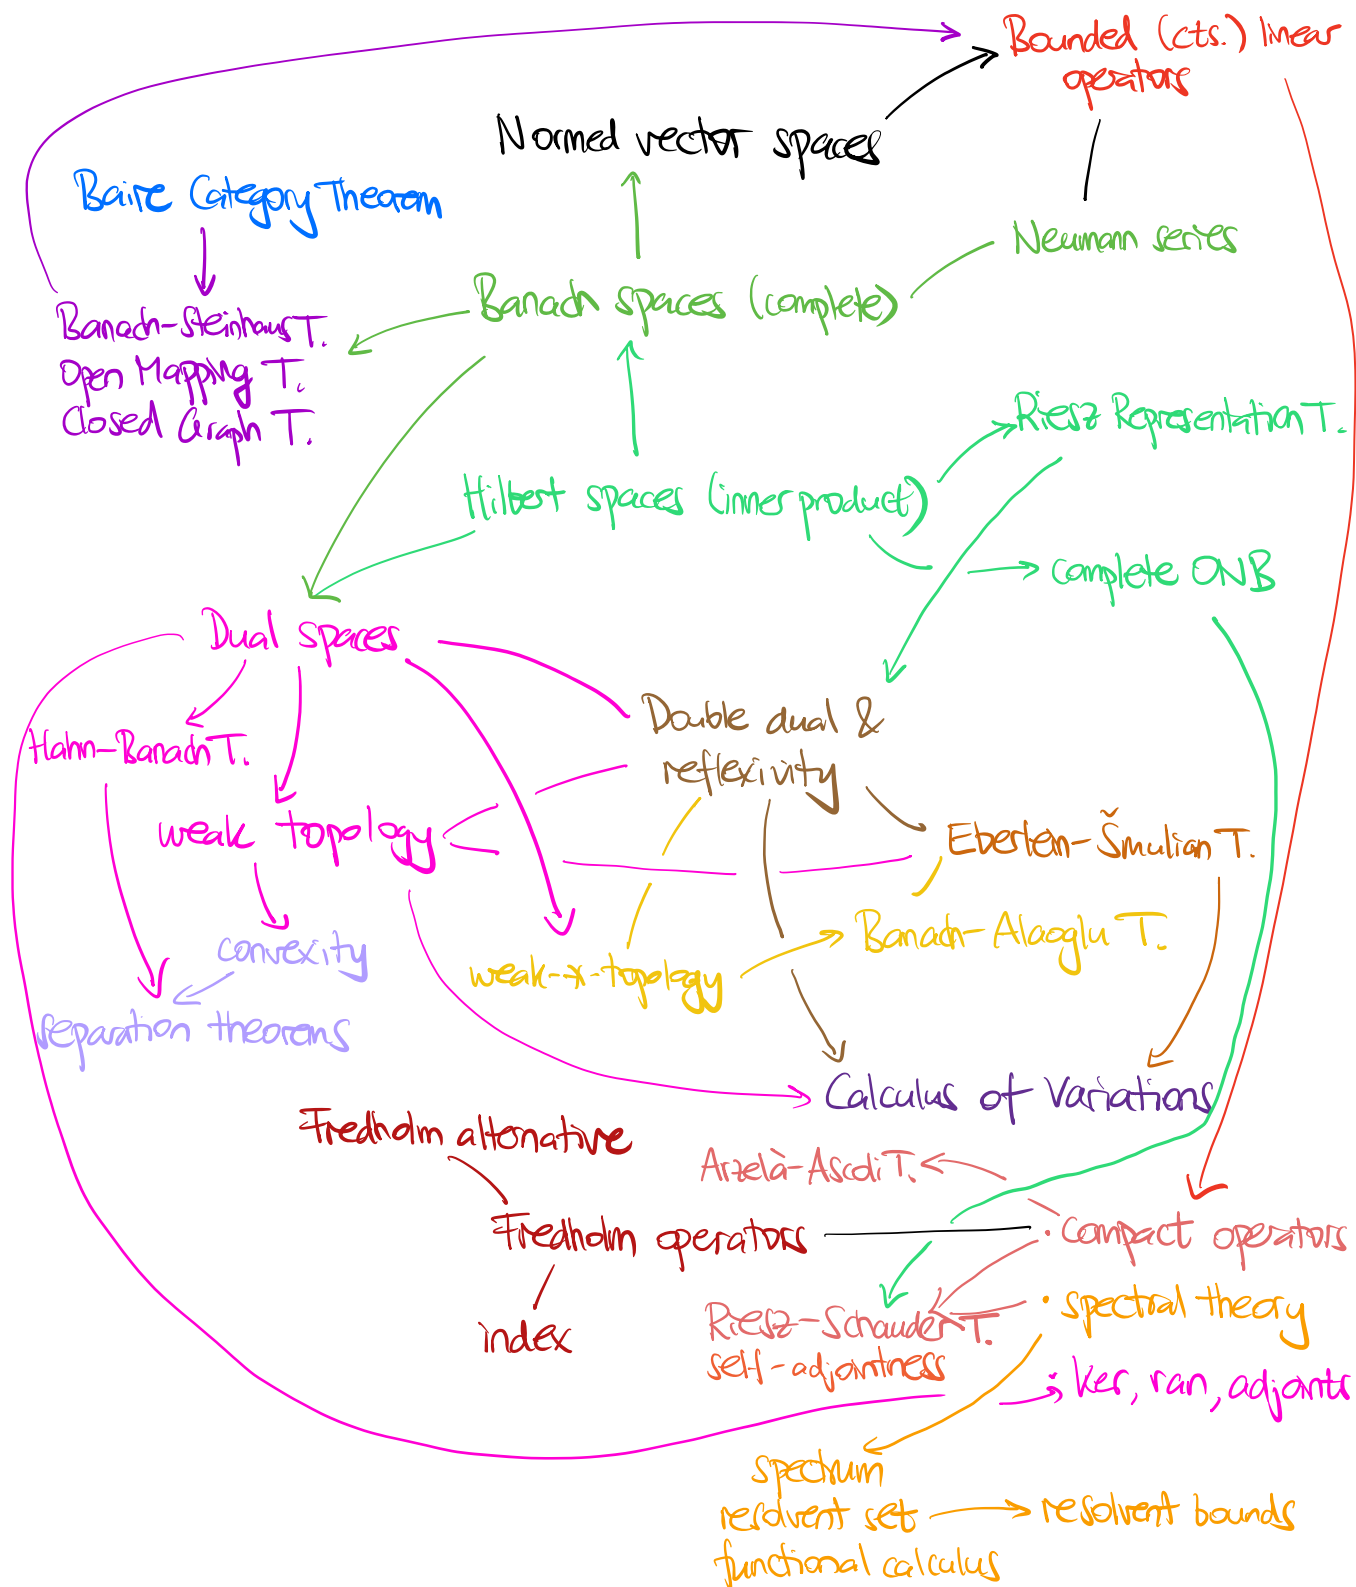 Bounded (cts.) linear
operators
Normed vector spaces
Baire Category Theorem
Neumann series
Banach spaces (complete)
Banach-Steinhaus T.
Open Mapping T.
Closed Graph T.
Riesz Representation T.
Hilbert spaces (inner product)
complete ONB
Dual spaces
Double dual &
reflexivity
Hahn-Banach T.
weak topology
Eberlein-Šmulian T.
Banach-Alaoglu T.
convexity
weak-*-topology
separation theorems
Calculus of Variations
Fredholm alternative
Arzelà-Ascoli T.
Fredholm operators
• compact operators
• spectral theory
Riesz-Schauder T.
index
self-adjointness
• ker, ran, adjoints
spectrum
resolvent set
resolvent bounds
functional calculus